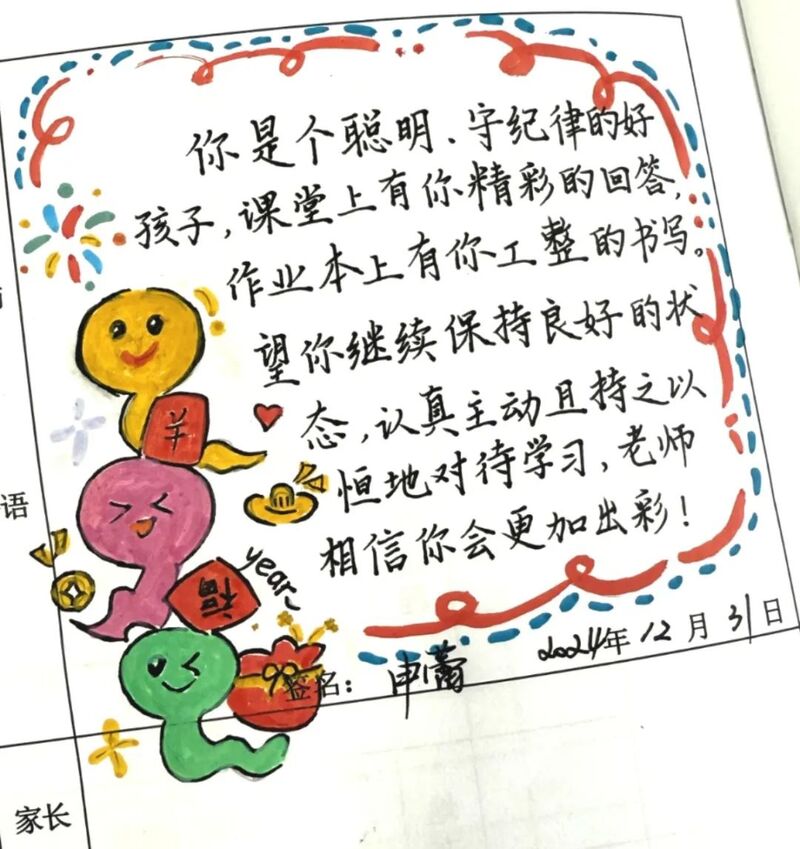 你是个聪明、守纪律的好
孩子,课堂上有你精彩的回答,
作业本上有你工整的书写。
望你继续保持良好的状
态,认真主动且持之以
恒地对待学习,老师
相信你会更加出彩!
year~
福
语
签名: 申蕾
2024年12月31日
家长